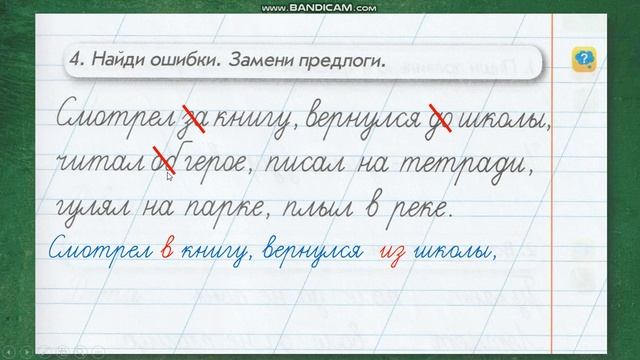 WWW.BANDICAM.COM
4. Найди ошибки. Замени предлоги.
Смотрел за книгу, вернулся до школы,
читал об герое, писал на тетради,
гулял на парке, плыл в реке.
Смотрел в книгу, вернулся из школы,